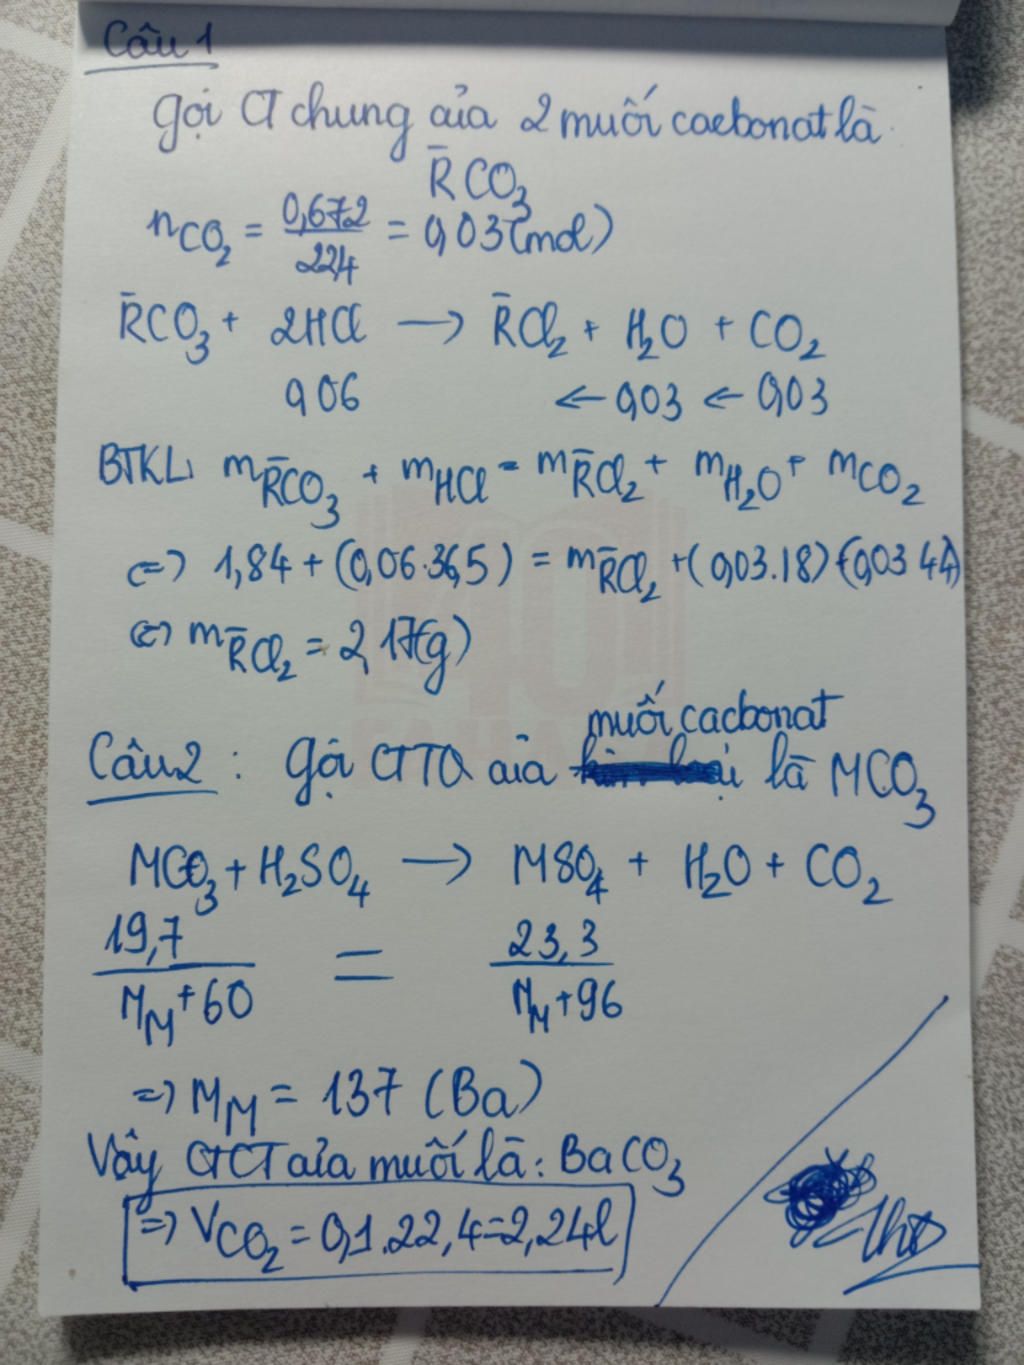 Câu 1
Gọi CT chung của 2 muối cacbonat là
R̄CO₃
nCO₂ = 0,672/22,4 = 0,03 (mol)
R̄CO₃ + 2HCl → R̄Cl₂ + H₂O + CO₂
0,06 ← 0,03 ← 0,03
BTKL: mR̄CO₃ + mHCl = mR̄Cl₂ + mH₂O + mCO₂
⇔ 1,84 + (0,06.36,5) = mR̄Cl₂ + (0,03.18) + (0,03.44)
⇔ mR̄Cl₂ = 2,17(g)
Câu 2 : Gọi CTTQ của muối cacbonat là MCO₃
MCO₃ + H₂SO₄ → MSO₄ + H₂O + CO₂
19,7/(M_M + 60) = 23,3/(M_M + 96)
⇒ M_M = 137 (Ba)
Vậy CTCT của muối là: BaCO₃
⇒ VCO₂ = 0,1.22,4 = 2,24l